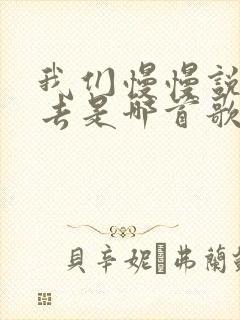 我们慢慢說
去是哪首歌
貝辛妮·弗蘭